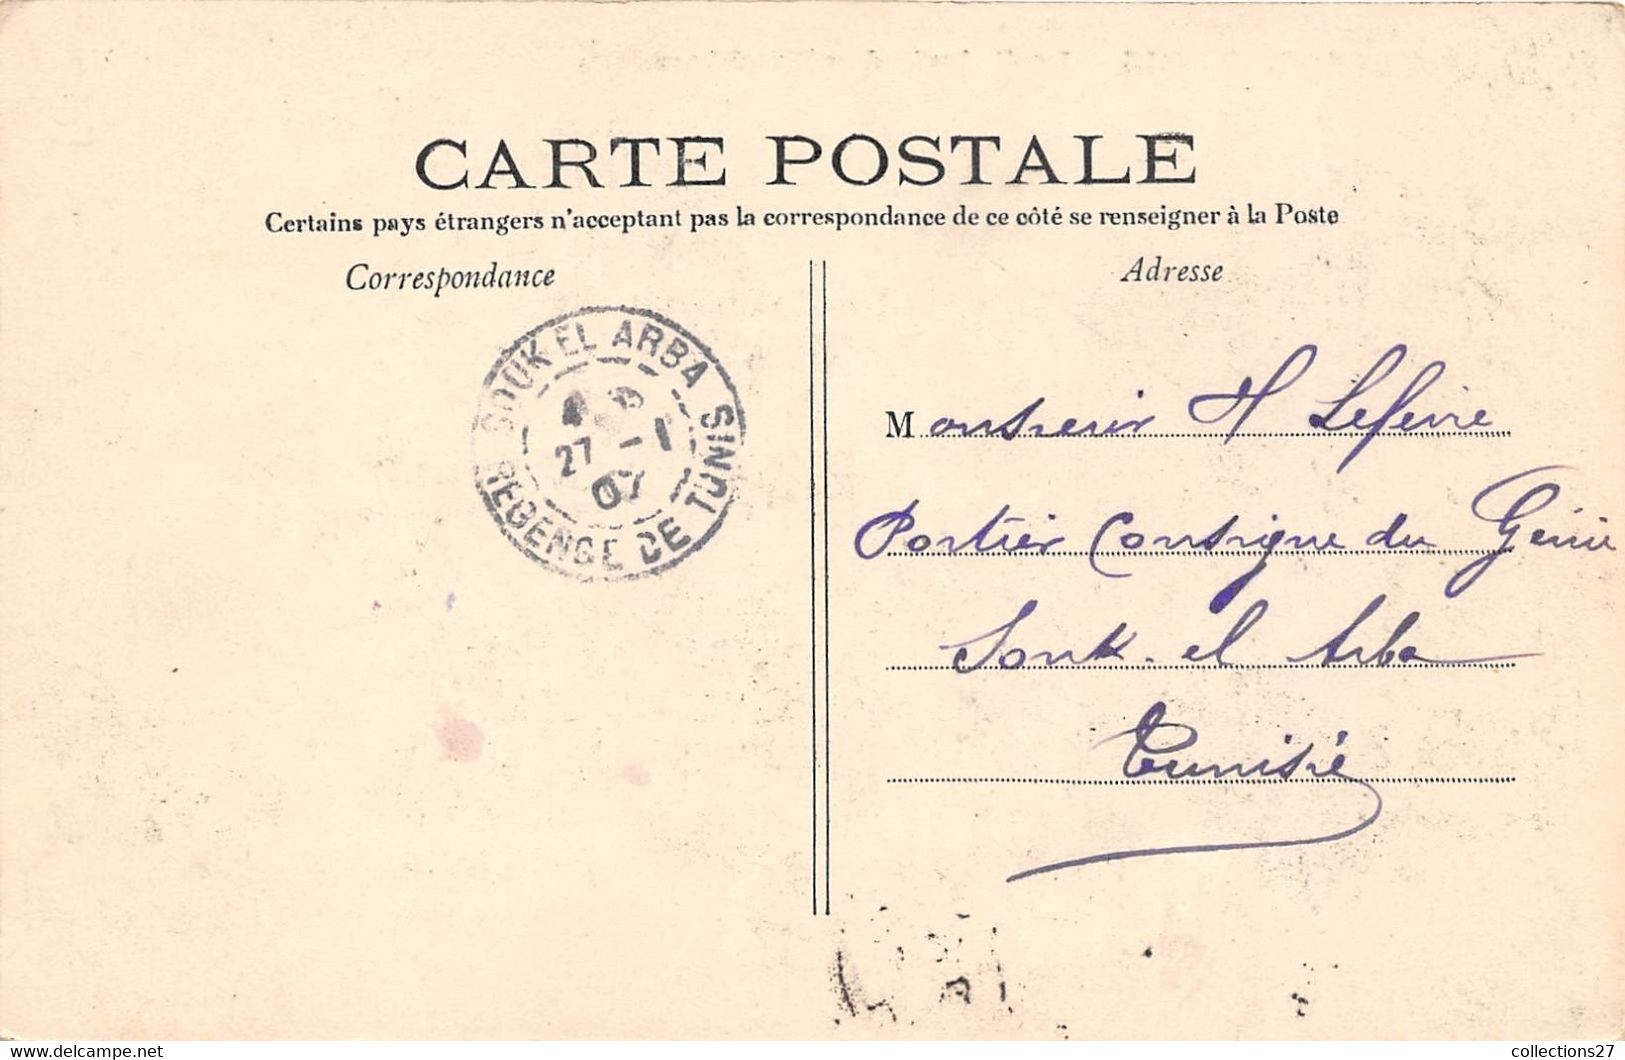 CARTE POSTALE
Certains pays étrangers n'acceptant pas la correspondance de ce côté se renseigner à la Poste
Correspondance
Adresse
SOUK EL ARBA
27 - 1
07
REGENCE DE TUNIS
Monsieur H Lefevre
Portier Consigne du Génie
Souk. el Arba
Tunisie
collections27